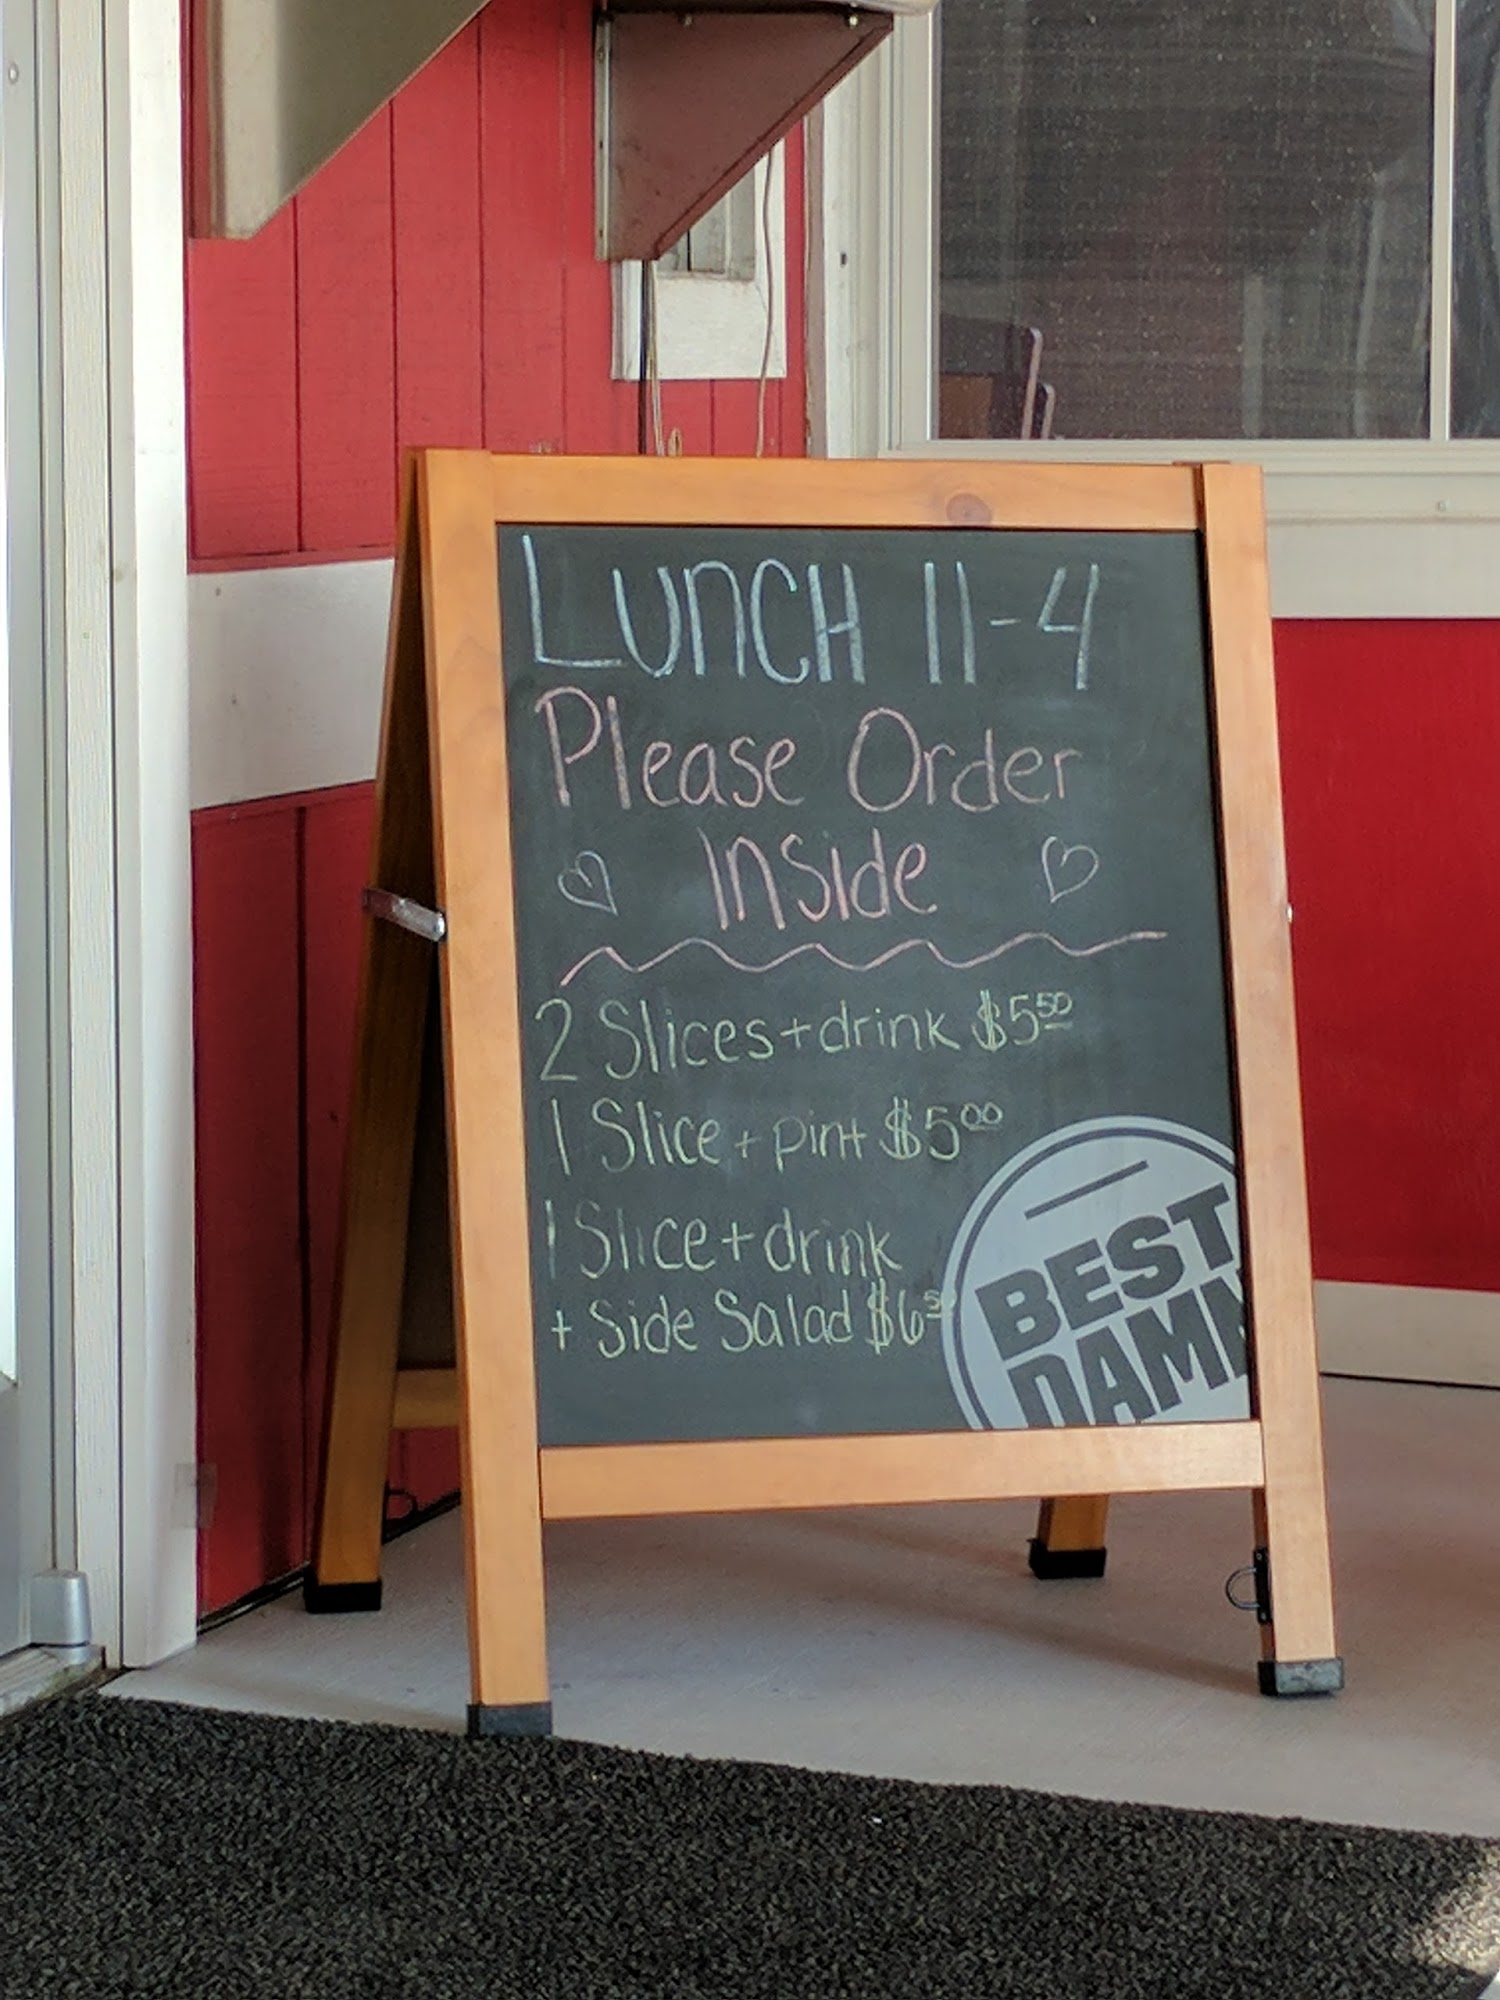 LUNCH 11-4
Please Order
Inside
2 Slices + drink $5 50
1 Slice + pint $5 00
1 Slice + drink
+ Side Salad $6 50
BEST
DAMN